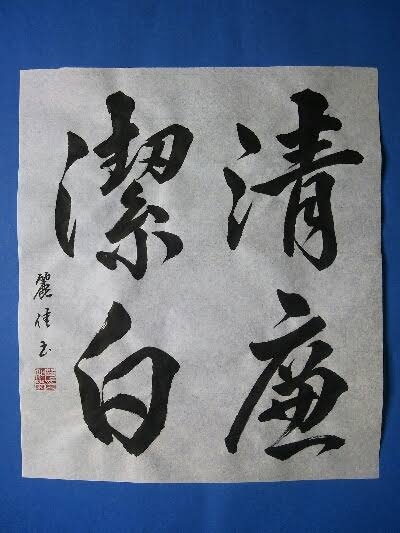 清廉
潔白
麗佳书